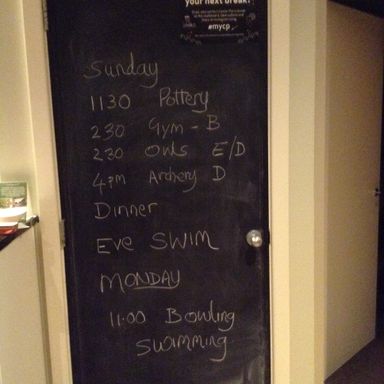 your next break?
#mycp
Sunday
1130 Pottery
230 Gym - B
230 Owls E/D
4pm Archery D
Dinner
Eve Swim
Monday
11:00 Bowling
Swimming